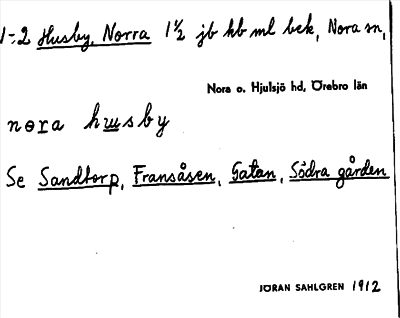 1-2 Husby, Norra 1½ jb kb ml bek, Nora sn,
Nora o. Hjulsjö hd, Örebro län
nora husby
Se Sandtorp, Fransåsen, Gatan, Södra gården
JÖRAN SAHLGREN 1912